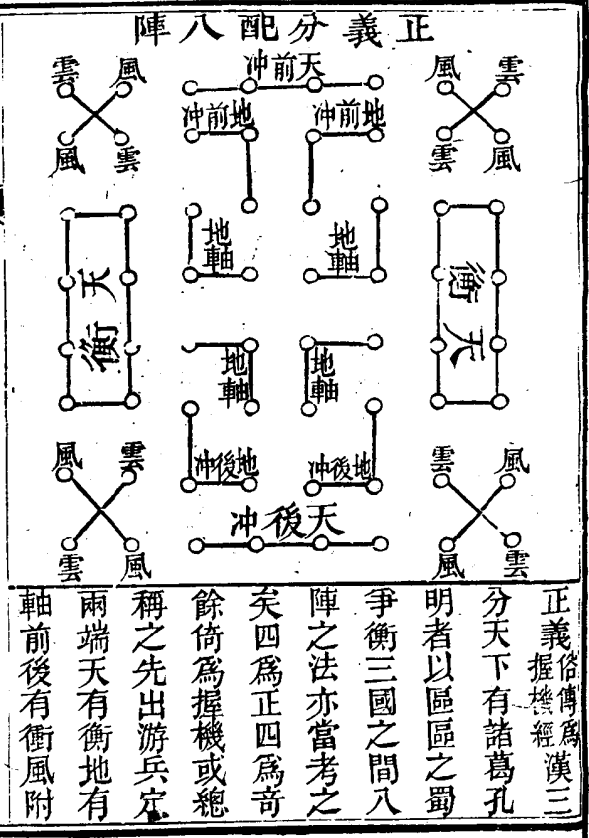 正義分配八陣
雲 風
雲 風
天前冲
風 雲
風 雲
地前冲
地前冲
天衡
地軸
地軸
天衡
地軸
地軸
風 雲
雲 風
地後冲
地後冲
天後冲
雲 風
風 雲
正義俗傳爲握機經漢三
分天下有諸葛孔
明者以區區之蜀
爭衡三國之間八
陣之法亦當考之
矣四爲正四爲竒
餘倚爲握機或總
稱之先出游兵定
兩端天有衡地有
軸前後有衝風附